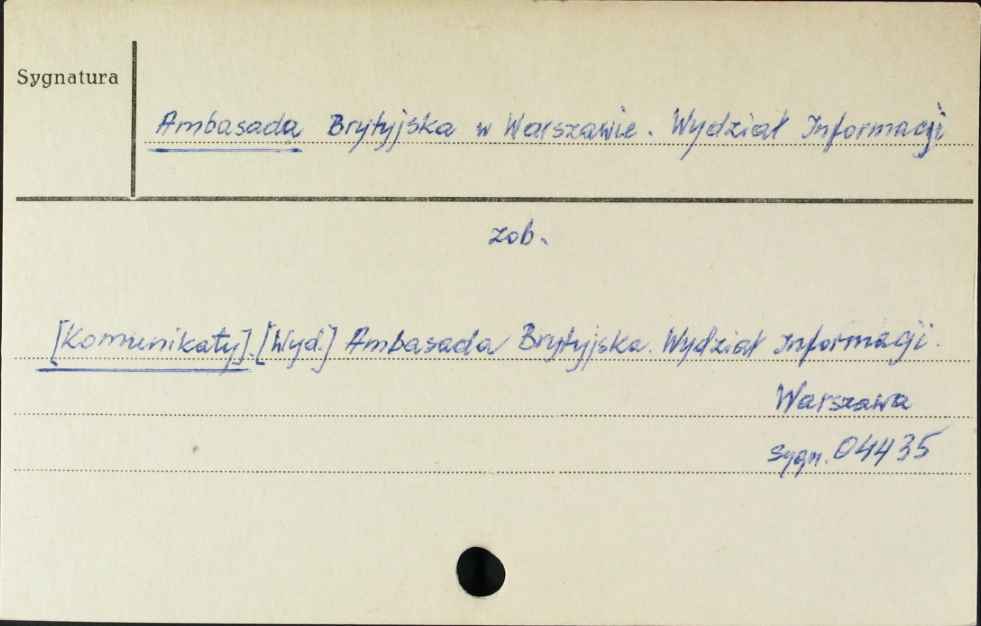 Sygnatura
Ambasada Brytyjska w Warszawie. Wydział Informacji
zob.
[Komunikaty]. [Wyd.] Ambasada Brytyjska. Wydział Informacji.
Warszawa
Sygn. 04435